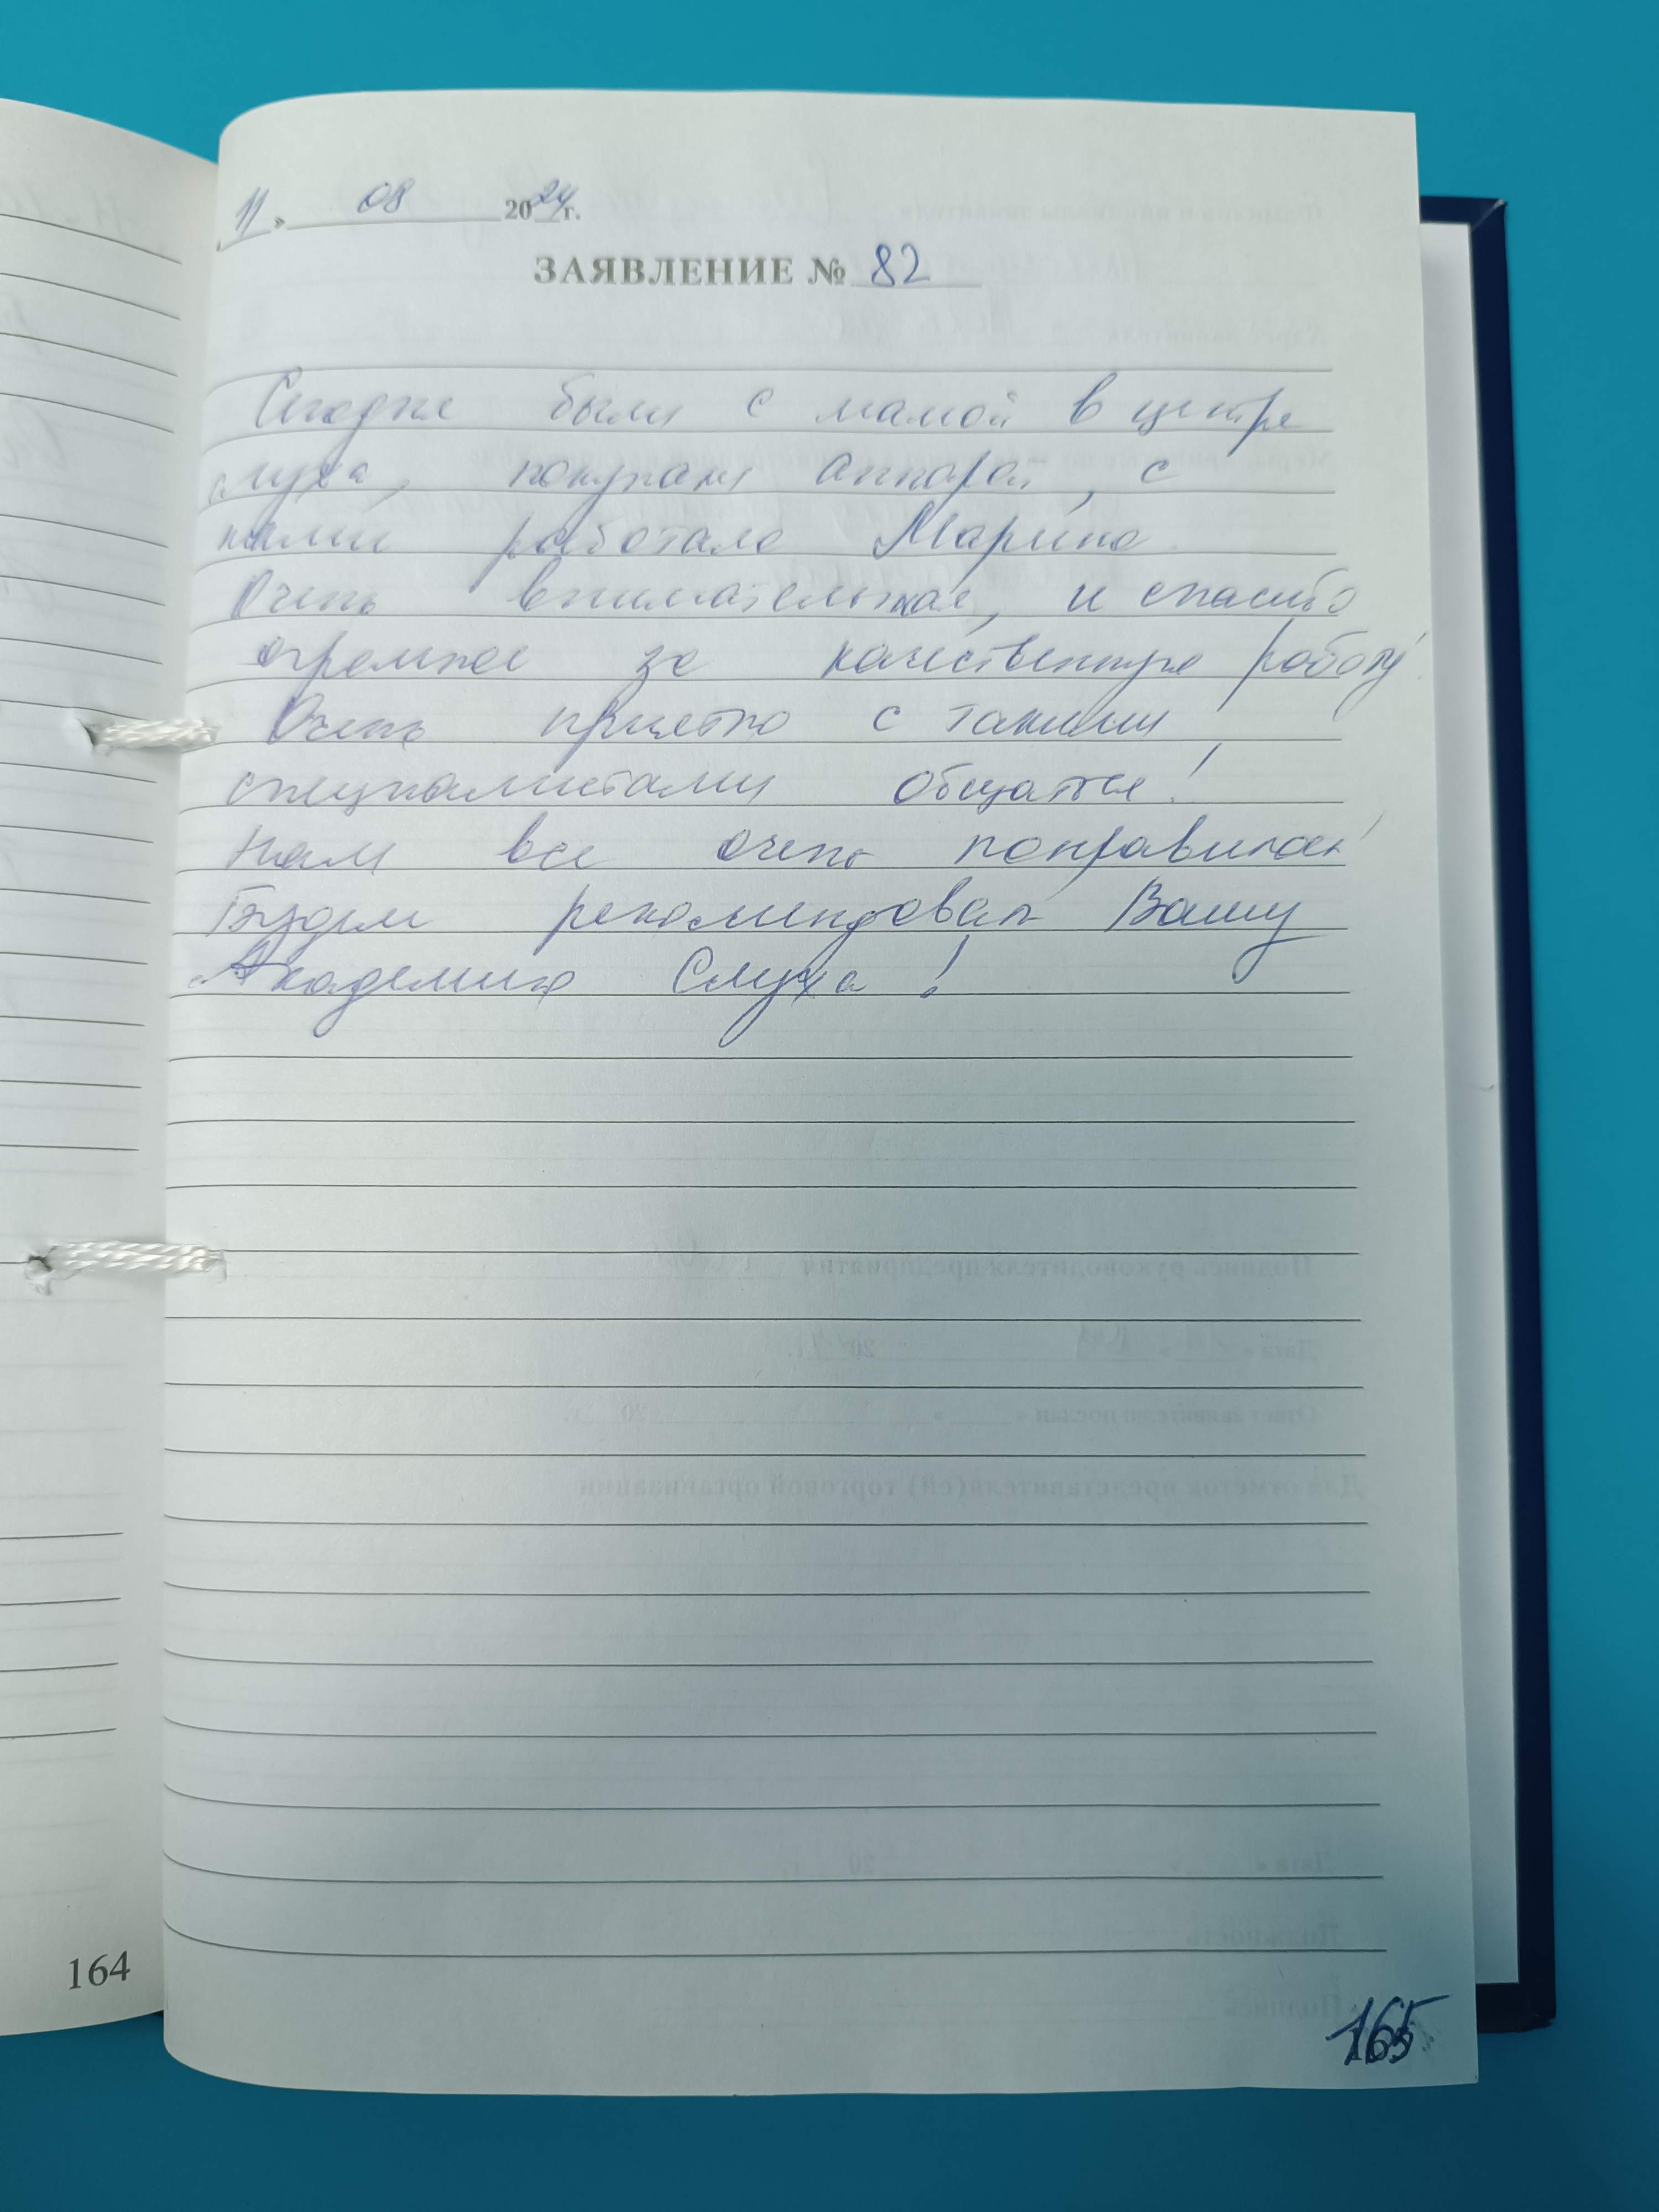 11 » 08 2024 г.
ЗАЯВЛЕНИЕ № 82
Сегодня были с мамой в центре
слуха, покупали аппарат, с
нами работала Марина
Очень внимательная, и спасибо
огромное за качественную работу!
Очень приятно с такими
специалистами общаться!
Нам все очень понравилось!
Будем рекомендовать Вашу
Академию Слуха!
164
165